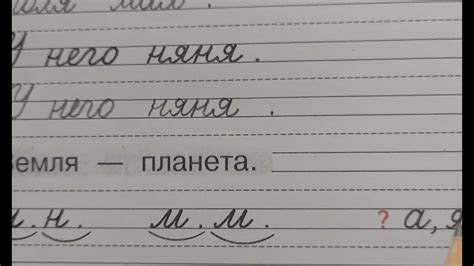 У него няня.
У него няня.
Земля — планета.
н. м. м. ? а, я